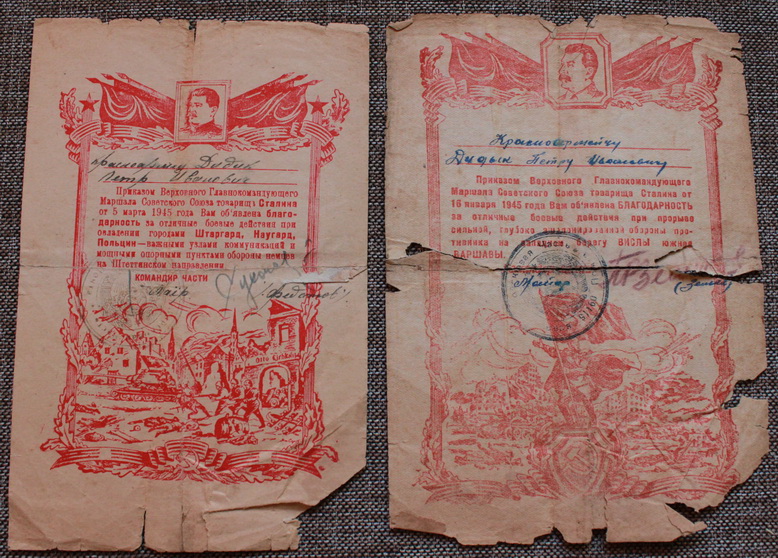 красноармейцу Дудик
Петр Иванович
Приказом Верховного Главнокомандующего
Маршала Советского Союза товарища Сталина
от 5 марта 1945 года Вам об'явлена благо-
дарность за отличные боевые действия при
овладении городами Штаргард, Наугард,
Польцин—важными узлами коммуникаций и
мощными опорными пунктами обороны немцев
на Штеттинском направлении.
КОМАНДИР ЧАСТИ
Федотов
Красноармейцу
Дудык Петру Ивановичу
Приказом Верховного Главнокомандующего
Маршала Советского Союза товарища Сталина от
16 января 1945 года Вам об'явлена БЛАГОДАРНОСТЬ
за отличные боевые действия при прорыве
сильной, глубоко эшелонированной обороны про-
тивника на западном берегу ВИСЛЫ южнее
ВАРШАВЫ.
Майор